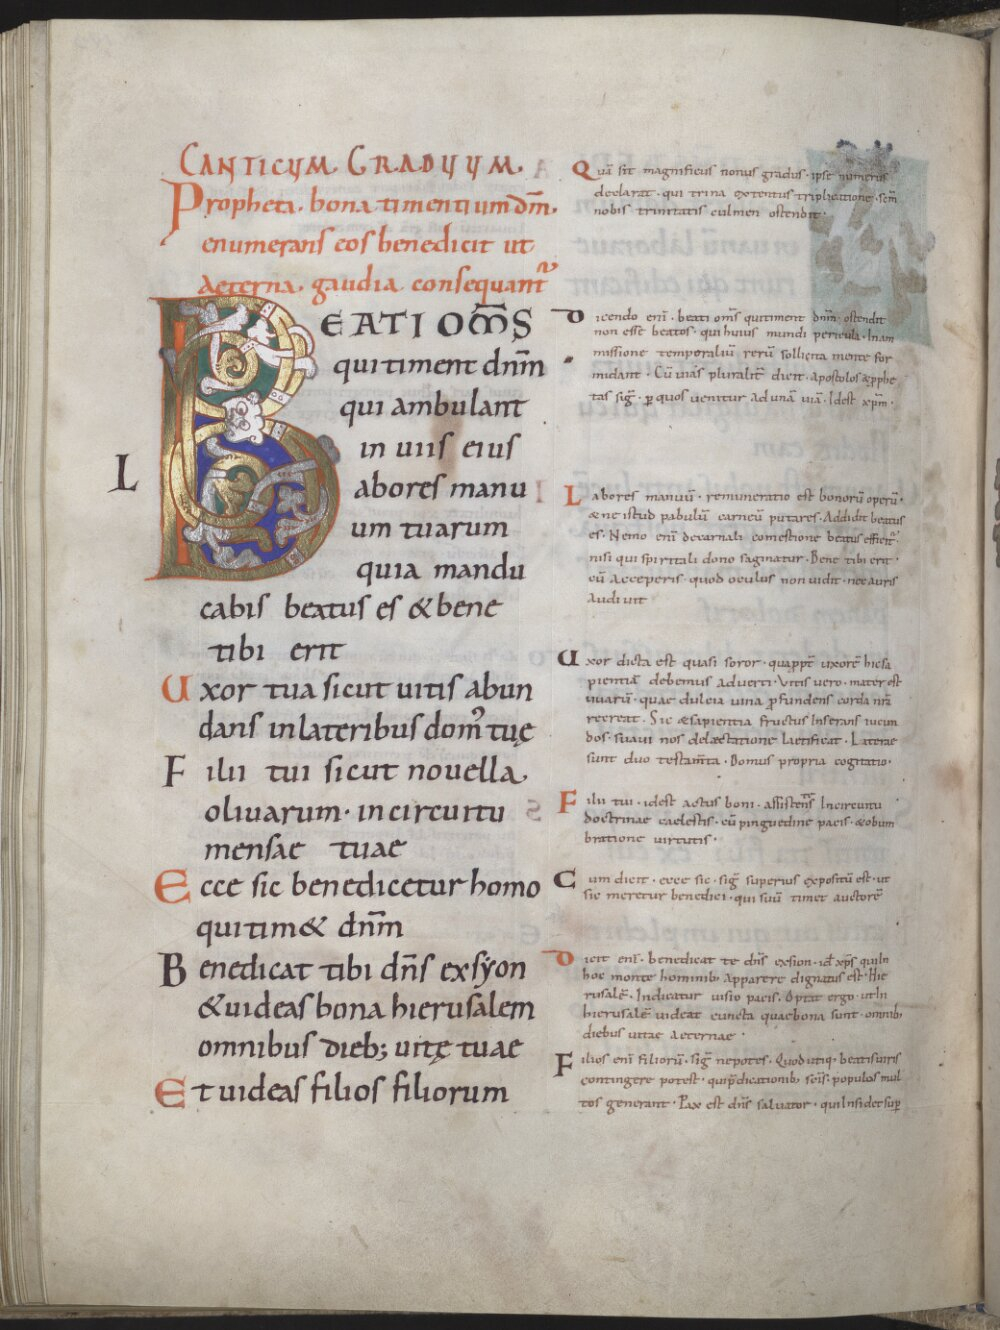 CANTICUM GRADUUM
Propheta. bona timentium dm̄.
enumerans eos benedicit ut
Aeterna. gaudia consequant᷑
BEATI OM̄S
qui timent dnm̄
qui ambulant
in uiis eius
Labores manu
um tuarum
quia mandu
cabis beatus es & bene
tibi erit
Uxor tua sicut uitis abun
dans in lateribus dom᷒ tuę
Filii tui sicut nouella
oliuarum. in circuitu
mensae tuae
Ecce sic benedicetur homo
qui tim& dnm̄
Benedicat tibi dn̄s exsyon
& uideas bona hierusalem
omnibus dieb; uitę tuae
Et uideas filios filiorum
Quā sit magnificus nonus gradus. ipse numerus
declarat. qui trina extentus triplicatione. sc̄m
nobis trinitatis culmen ostendit.
Dicendo eni᷑. beati om̄s qui timent dnm̄. ostendit
non esse beatos. qui huius mundi pericula. Inam
missione temporaliū rerū sollicita mente for
midant. Cū uias pluralit᷑ dicit. Apostolos & pphe
tas sig᷑. p quos uenitur ad unā uiā. Idest xpm̄.
Labores manuū. remuneratio est bonorū operū.
& ne istud pabulū carneū putares. Addidit beatus
es. Nemo eni᷑ de carnali comestione beatus efficit᷑.
nisi qui spiritali dono saginatur. Bene tibi erit.
cū Acceperis. quod oculus non uidit. nec auris
Audiuit
Uxor dicta est quasi soror. quappt᷑ uxorē hic sa
pientiā debemus Aduerti. Vitis uero. mater est
uuarū. quae dulcia uina pfundens corda nr̄a
recreat. Sic & sapientia fructus Inserans iucun
dos. suaui nos delectatione laetificat. Laterae
sunt duo testam̄ta. Domus propria cogitatio.
Filii tui. idest actus boni. assistens᷑ Incircuitu
doctrinae caelestis. cū pinguedine pacis. & obum
bratione uirtutis.
Cum dicit. ecce sic. sig᷑ superius expositū est. ut
sic meretur benedici. qui suū timet auctorē
Dicit eni᷑. benedicat te dn̄s exsion. id᷑ xp̄s qui In
hoc monte hominib; Apparere dignatus est. Hie
rusalē. Indicatur uisio pacis. Optat ergo. ut In
hierusalē uideat cuncta quae bona sunt. omnib;
diebus uitae Aeternae.
Filios eni᷑ filiorū. sig᷑ nepotes. Quod utiq; beatis uiris
contingere potest. qui pdicationib; sc̄is. populos mul
tos generant. Pax est dn̄s saluator. qui Insidet sup